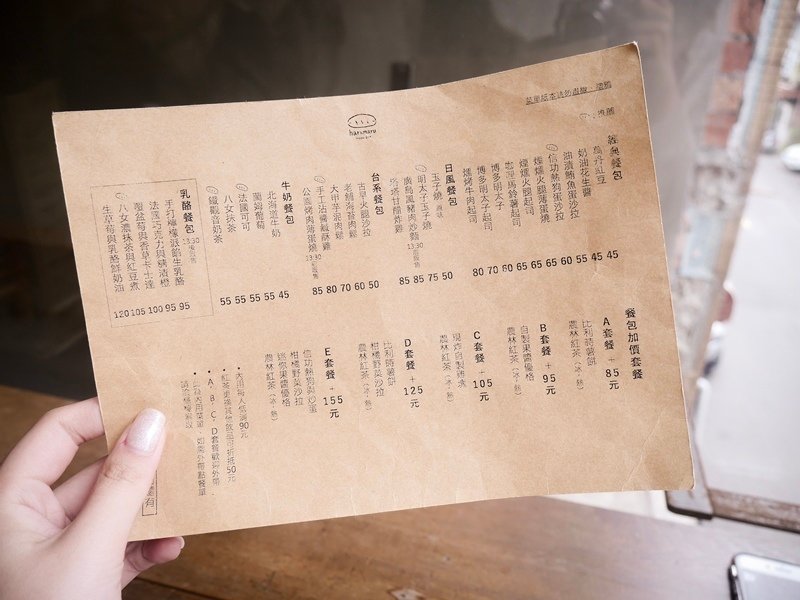 harumaru
經典餐包
烏丹紅豆 45
奶油花生醬 45
油漬鮪魚蛋沙拉 55
信功熱狗蛋沙拉 60
煙燻火腿薄蛋燒 65
煙燻火腿起司 65
咖哩馬鈴薯起司 65
博多明太子起司 60
博多明太子 70
燻烤牛肉起司 80
日風餐包
玉子燒 50
明太子玉子燒 75
廣島風豬肉炒麵 85
塔塔甘醋炸雞 85
台系餐包
古早火腿沙拉 50
老鋪海苔肉鬆 60
大甲芋泥肉鬆 70
80
公園烤肉薄蛋燒 85
牛奶餐包
北海道牛奶 45
蘭姆葡萄 55
法國可可 55
八女抹茶 55
鐵觀音奶茶 55
乳酪餐包
13:30
手打檸檬派餡生乳酪 95
法國巧克力與糖漬橙 95
覆盆莓與香草卡士達 100
八女濃抹茶與紅豆煮 105
生草莓與乳酪鮮奶油 120
餐包加價套餐
A 套餐 + 85元
比利時薯餅
農林紅茶(冰・熱)
B 套餐 + 95元
自製果醬優格
農林紅茶(冰・熱)
C 套餐 + 105元
農林紅茶(冰・熱)
D 套餐 + 125元
比利時薯餅
柑橘野菜沙拉
農林紅茶(冰・熱)
E 套餐 + 155元
信功熱狗與炒蛋
柑橘野菜沙拉
迷你果醬優格
農林紅茶(冰・熱)
・內用每人低消90元
・紅茶更換其他飲品可折抵50元
・A、B、C、D套餐歡迎外帶